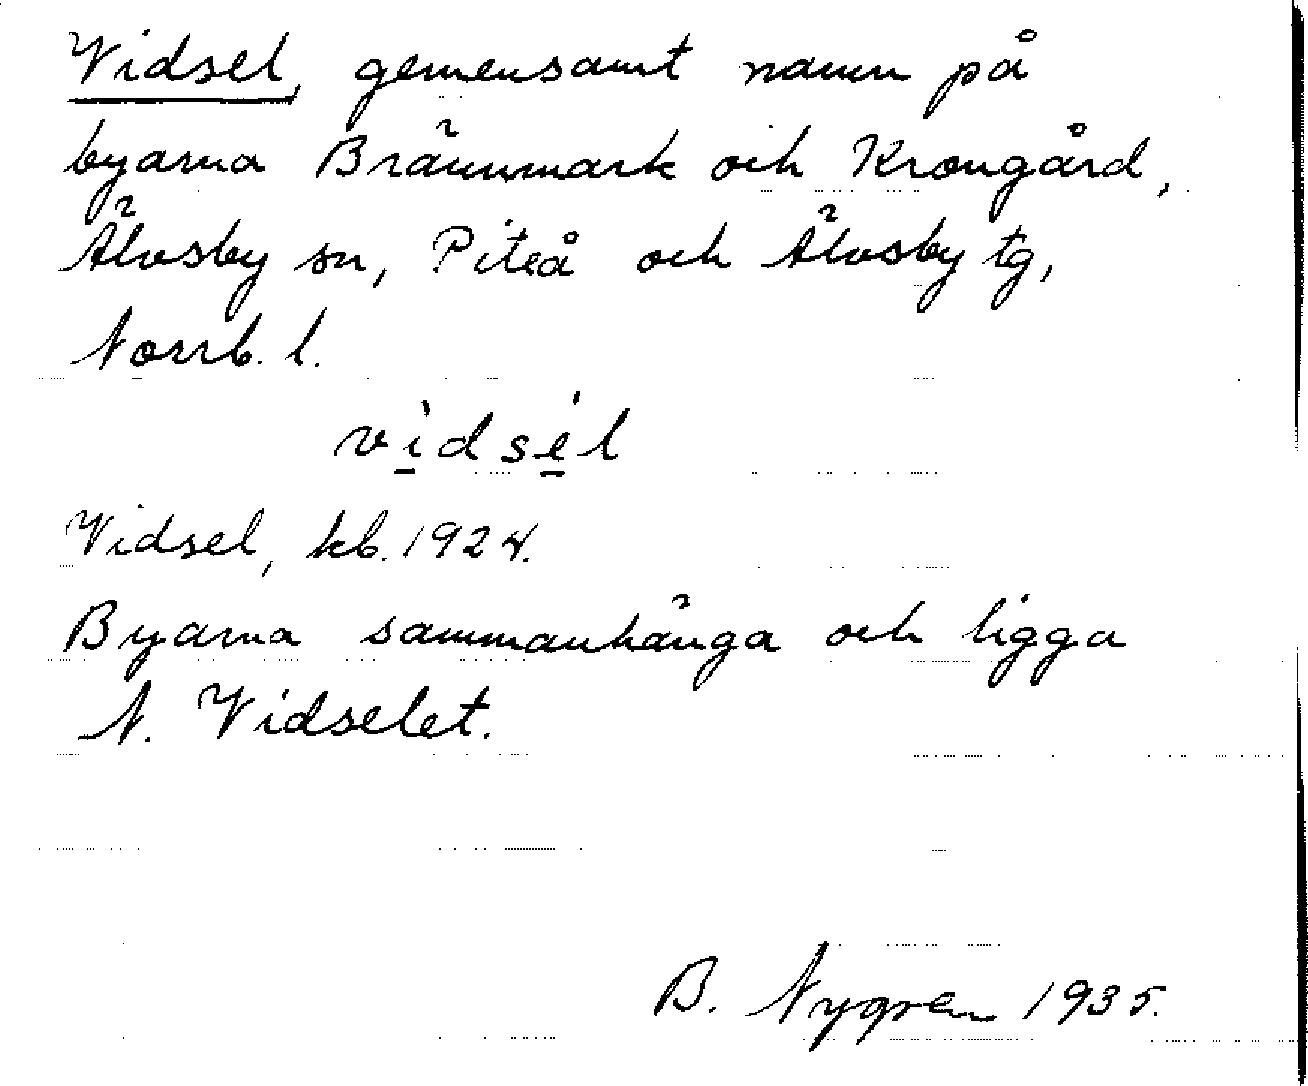 Vidsel, gemensamt namn på
byarna Brännmark och Krongård,
Älvsby sn, Piteå och Älvsby tg,
Norrb. l.
vì̠dsé̠l
Vidsel, kb. 1924.
Byarna sammanhänga och ligga
N. Vidselet.
B. Nygren 1935.